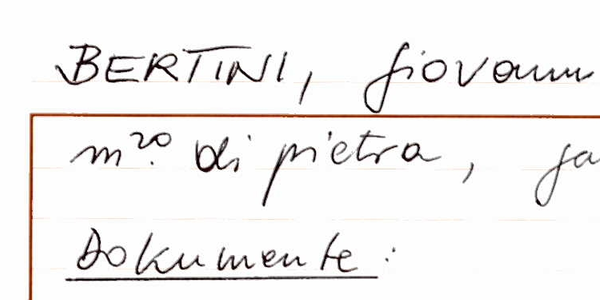 BERTINI, Giovanni
m.ro di pietra,
Dokumente: